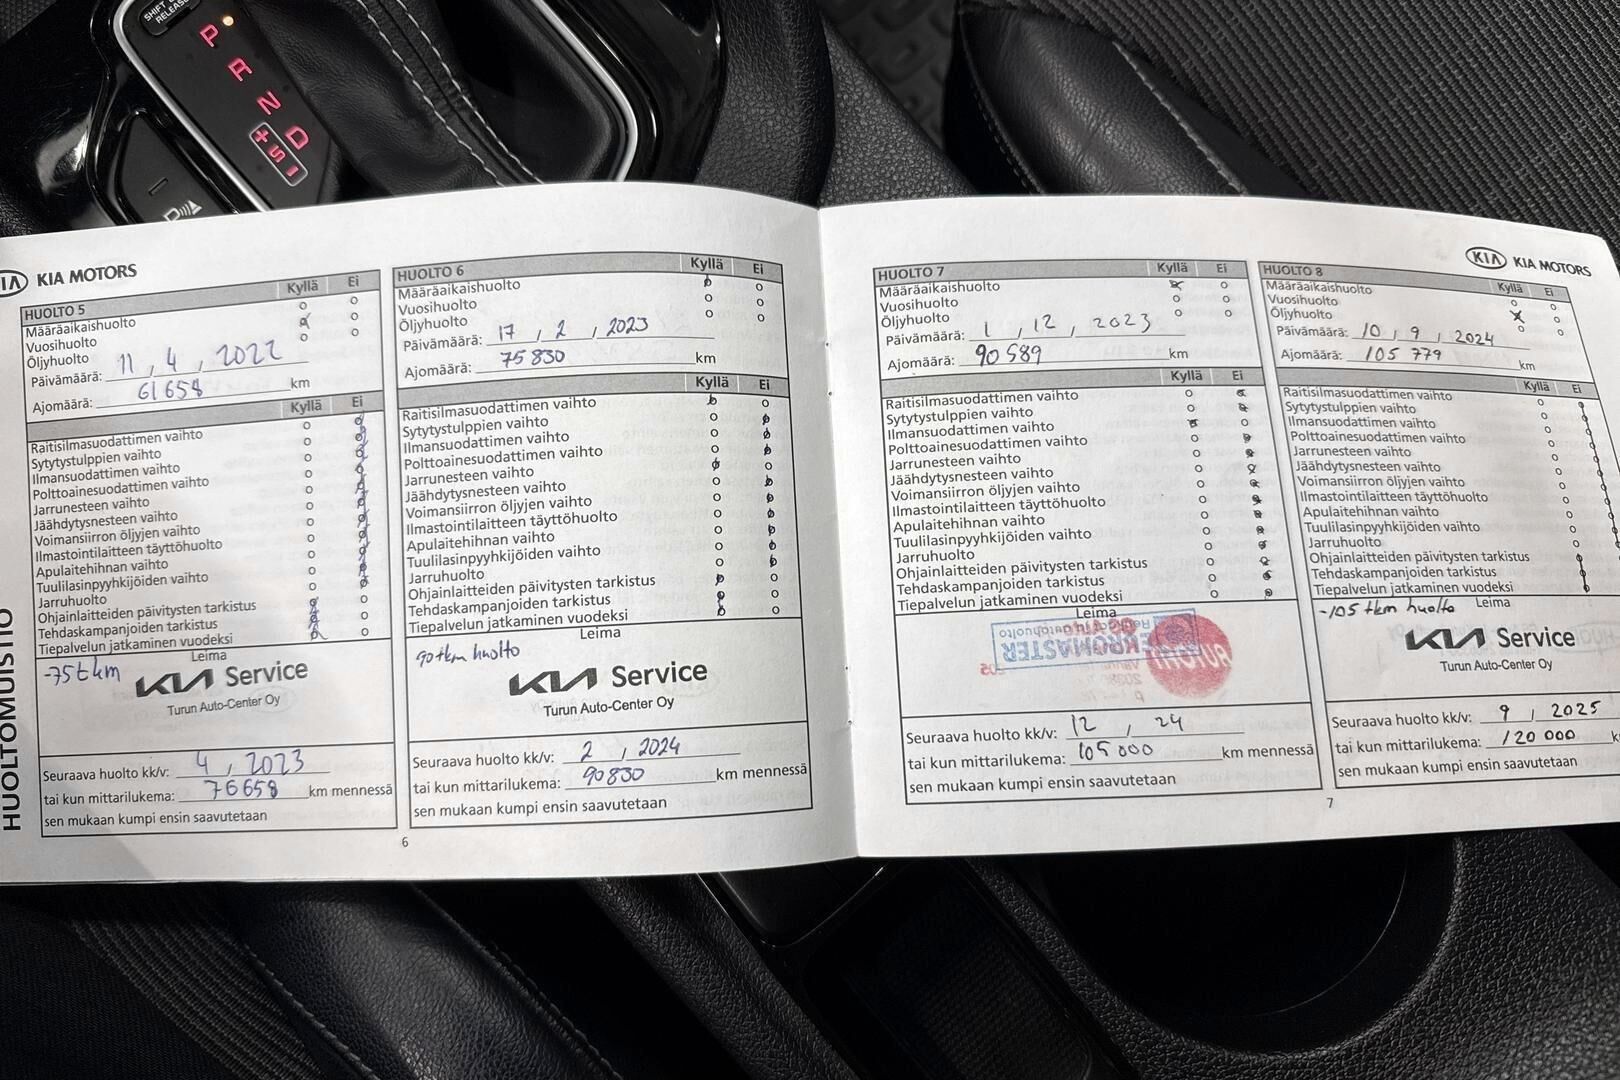 SHIFT LOCK
RELEASE
P
R
N
D
+
S
-
HUOLTOMUISTIO
KIA KIA MOTORS
HUOLTO 5 Kyllä Ei
Määräaikaishuolto
Vuosihuolto
Öljyhuolto
Päivämäärä: 11 , 4 , 2022
Ajomäärä: 61658 km
Kyllä Ei
Raitisilmasuodattimen vaihto
Sytytystulppien vaihto
Ilmansuodattimen vaihto
Polttoainesuodattimen vaihto
Jarrunesteen vaihto
Jäähdytysnesteen vaihto
Voimansiirron öljyjen vaihto
Ilmastointilaitteen täyttöhuolto
Apulaitehihnan vaihto
Tuulilasinpyyhkijöiden vaihto
Jarruhuolto
Ohjainlaitteiden päivitysten tarkistus
Tehdaskampanjoiden tarkistus
Tiepalvelun jatkaminen vuodeksi
Leima
-75tkm
KIA Service
Turun Auto-Center Oy
Seuraava huolto kk/v: 4 , 2023
tai kun mittarilukema: 76658 km mennessä
sen mukaan kumpi ensin saavutetaan
HUOLTO 6 Kyllä Ei
Määräaikaishuolto
Vuosihuolto
Öljyhuolto
Päivämäärä: 17 , 2 , 2023
Ajomäärä: 75830 km
Kyllä Ei
Raitisilmasuodattimen vaihto
Sytytystulppien vaihto
Ilmansuodattimen vaihto
Polttoainesuodattimen vaihto
Jarrunesteen vaihto
Jäähdytysnesteen vaihto
Voimansiirron öljyjen vaihto
Ilmastointilaitteen täyttöhuolto
Apulaitehihnan vaihto
Tuulilasinpyyhkijöiden vaihto
Jarruhuolto
Ohjainlaitteiden päivitysten tarkistus
Tehdaskampanjoiden tarkistus
Tiepalvelun jatkaminen vuodeksi
Leima
90tkm huolto
KIA Service
Turun Auto-Center Oy
Seuraava huolto kk/v: 2 , 2024
tai kun mittarilukema: 90830 km mennessä
sen mukaan kumpi ensin saavutetaan
6
HUOLTO 7 Kyllä Ei
Määräaikaishuolto
Vuosihuolto
Öljyhuolto
Päivämäärä: 1 , 12 , 2023
Ajomäärä: 90589 km
Kyllä Ei
Raitisilmasuodattimen vaihto
Sytytystulppien vaihto
Ilmansuodattimen vaihto
Polttoainesuodattimen vaihto
Jarrunesteen vaihto
Jäähdytysnesteen vaihto
Voimansiirron öljyjen vaihto
Ilmastointilaitteen täyttöhuolto
Apulaitehihnan vaihto
Tuulilasinpyyhkijöiden vaihto
Jarruhuolto
Ohjainlaitteiden päivitysten tarkistus
Tehdaskampanjoiden tarkistus
Tiepalvelun jatkaminen vuodeksi
Leima
EUROMASTER
Rengas ja autohuolto
Seuraava huolto kk/v: 12 , 24
tai kun mittarilukema: 105000 km mennessä
sen mukaan kumpi ensin saavutetaan
7
KIA KIA MOTORS
HUOLTO 8 Kyllä Ei
Määräaikaishuolto
Vuosihuolto
Öljyhuolto
Päivämäärä: 10 , 9 , 2024
Ajomäärä: 105 779 km
Kyllä Ei
Raitisilmasuodattimen vaihto
Sytytystulppien vaihto
Ilmansuodattimen vaihto
Polttoainesuodattimen vaihto
Jarrunesteen vaihto
Jäähdytysnesteen vaihto
Voimansiirron öljyjen vaihto
Ilmastointilaitteen täyttöhuolto
Apulaitehihnan vaihto
Tuulilasinpyyhkijöiden vaihto
Jarruhuolto
Ohjainlaitteiden päivitysten tarkistus
Tehdaskampanjoiden tarkistus
Tiepalvelun jatkaminen vuodeksi
-105 tkm huolto Leima
KIA Service
Turun Auto-Center Oy
Seuraava huolto kk/v: 9 , 2025
tai kun mittarilukema: 120 000
sen mukaan kumpi ensin saavutetaan